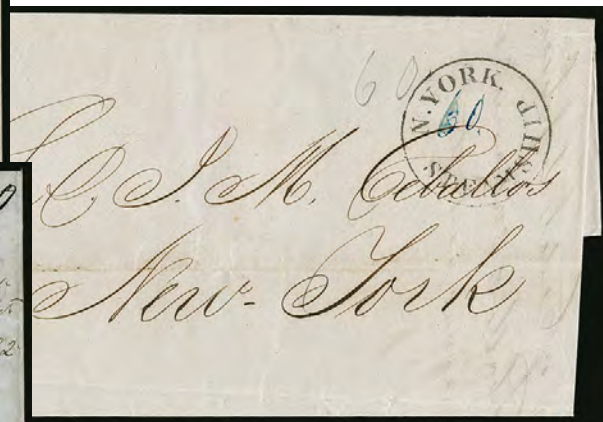 60
N. YORK. STEAM SHIP
60
J. M. Ceballos
New-York